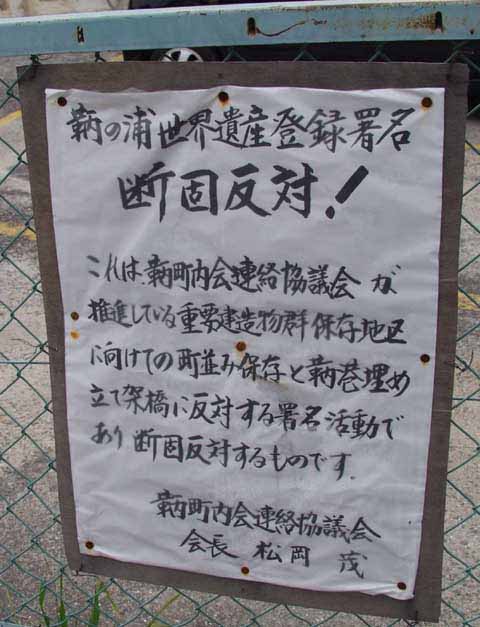 鞆の浦世界遺産登録署名
断固反対!
これは、鞆町内会連絡協議会が
推進している重要建造物群保存地区
に向けての町並み保存と鞆港埋め
立て架橋に反対する署名活動で
あり断固反対するものです.
鞆町内会連絡協議会
会長 松岡 茂